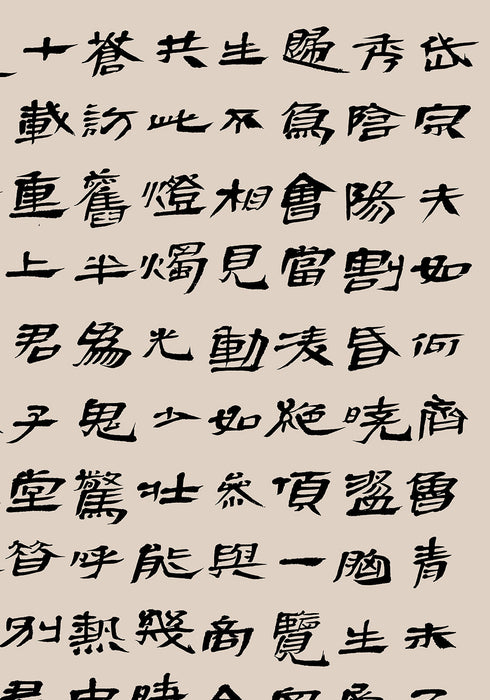 岱宗夫如何齊魯青未了
秀陰陽割昏曉盪胸生
歸鳥會當凌絕頂一覽眾
生不相見動如參與商今
共此燈燭光少壯能幾時
蒼訪舊半為鬼驚呼熱中
十載重上君子堂昔別君